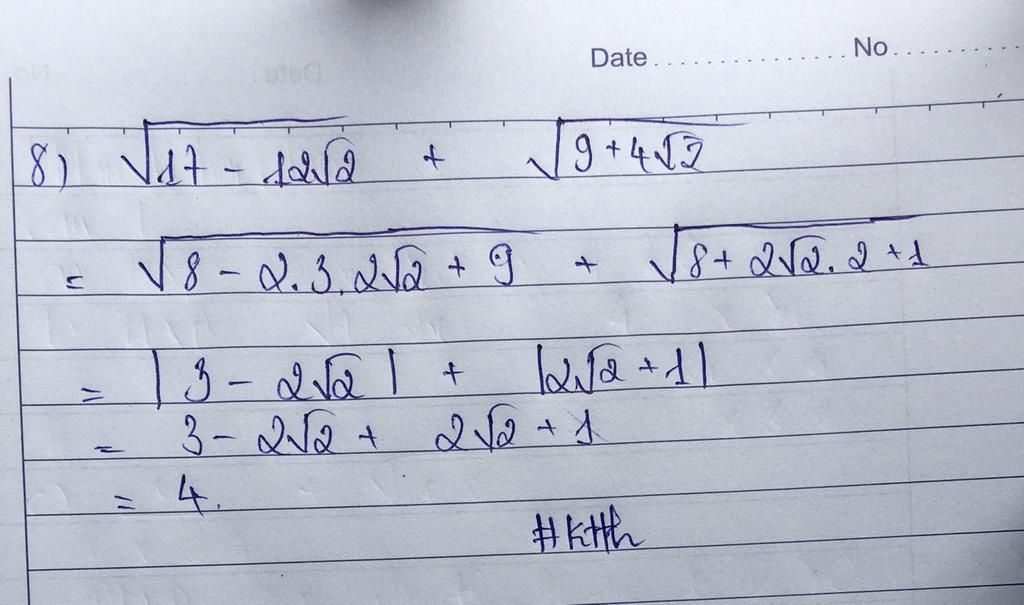 Date ............... No ..........
8) √17 - 12√2 + √9 + 4√2
= √8 - 2.3.2√2 + 9 + √8 + 2√2.2 + 1
= |3 - 2√2| + |2√2 + 1|
= 3 - 2√2 + 2√2 + 1
= 4.
#KHh